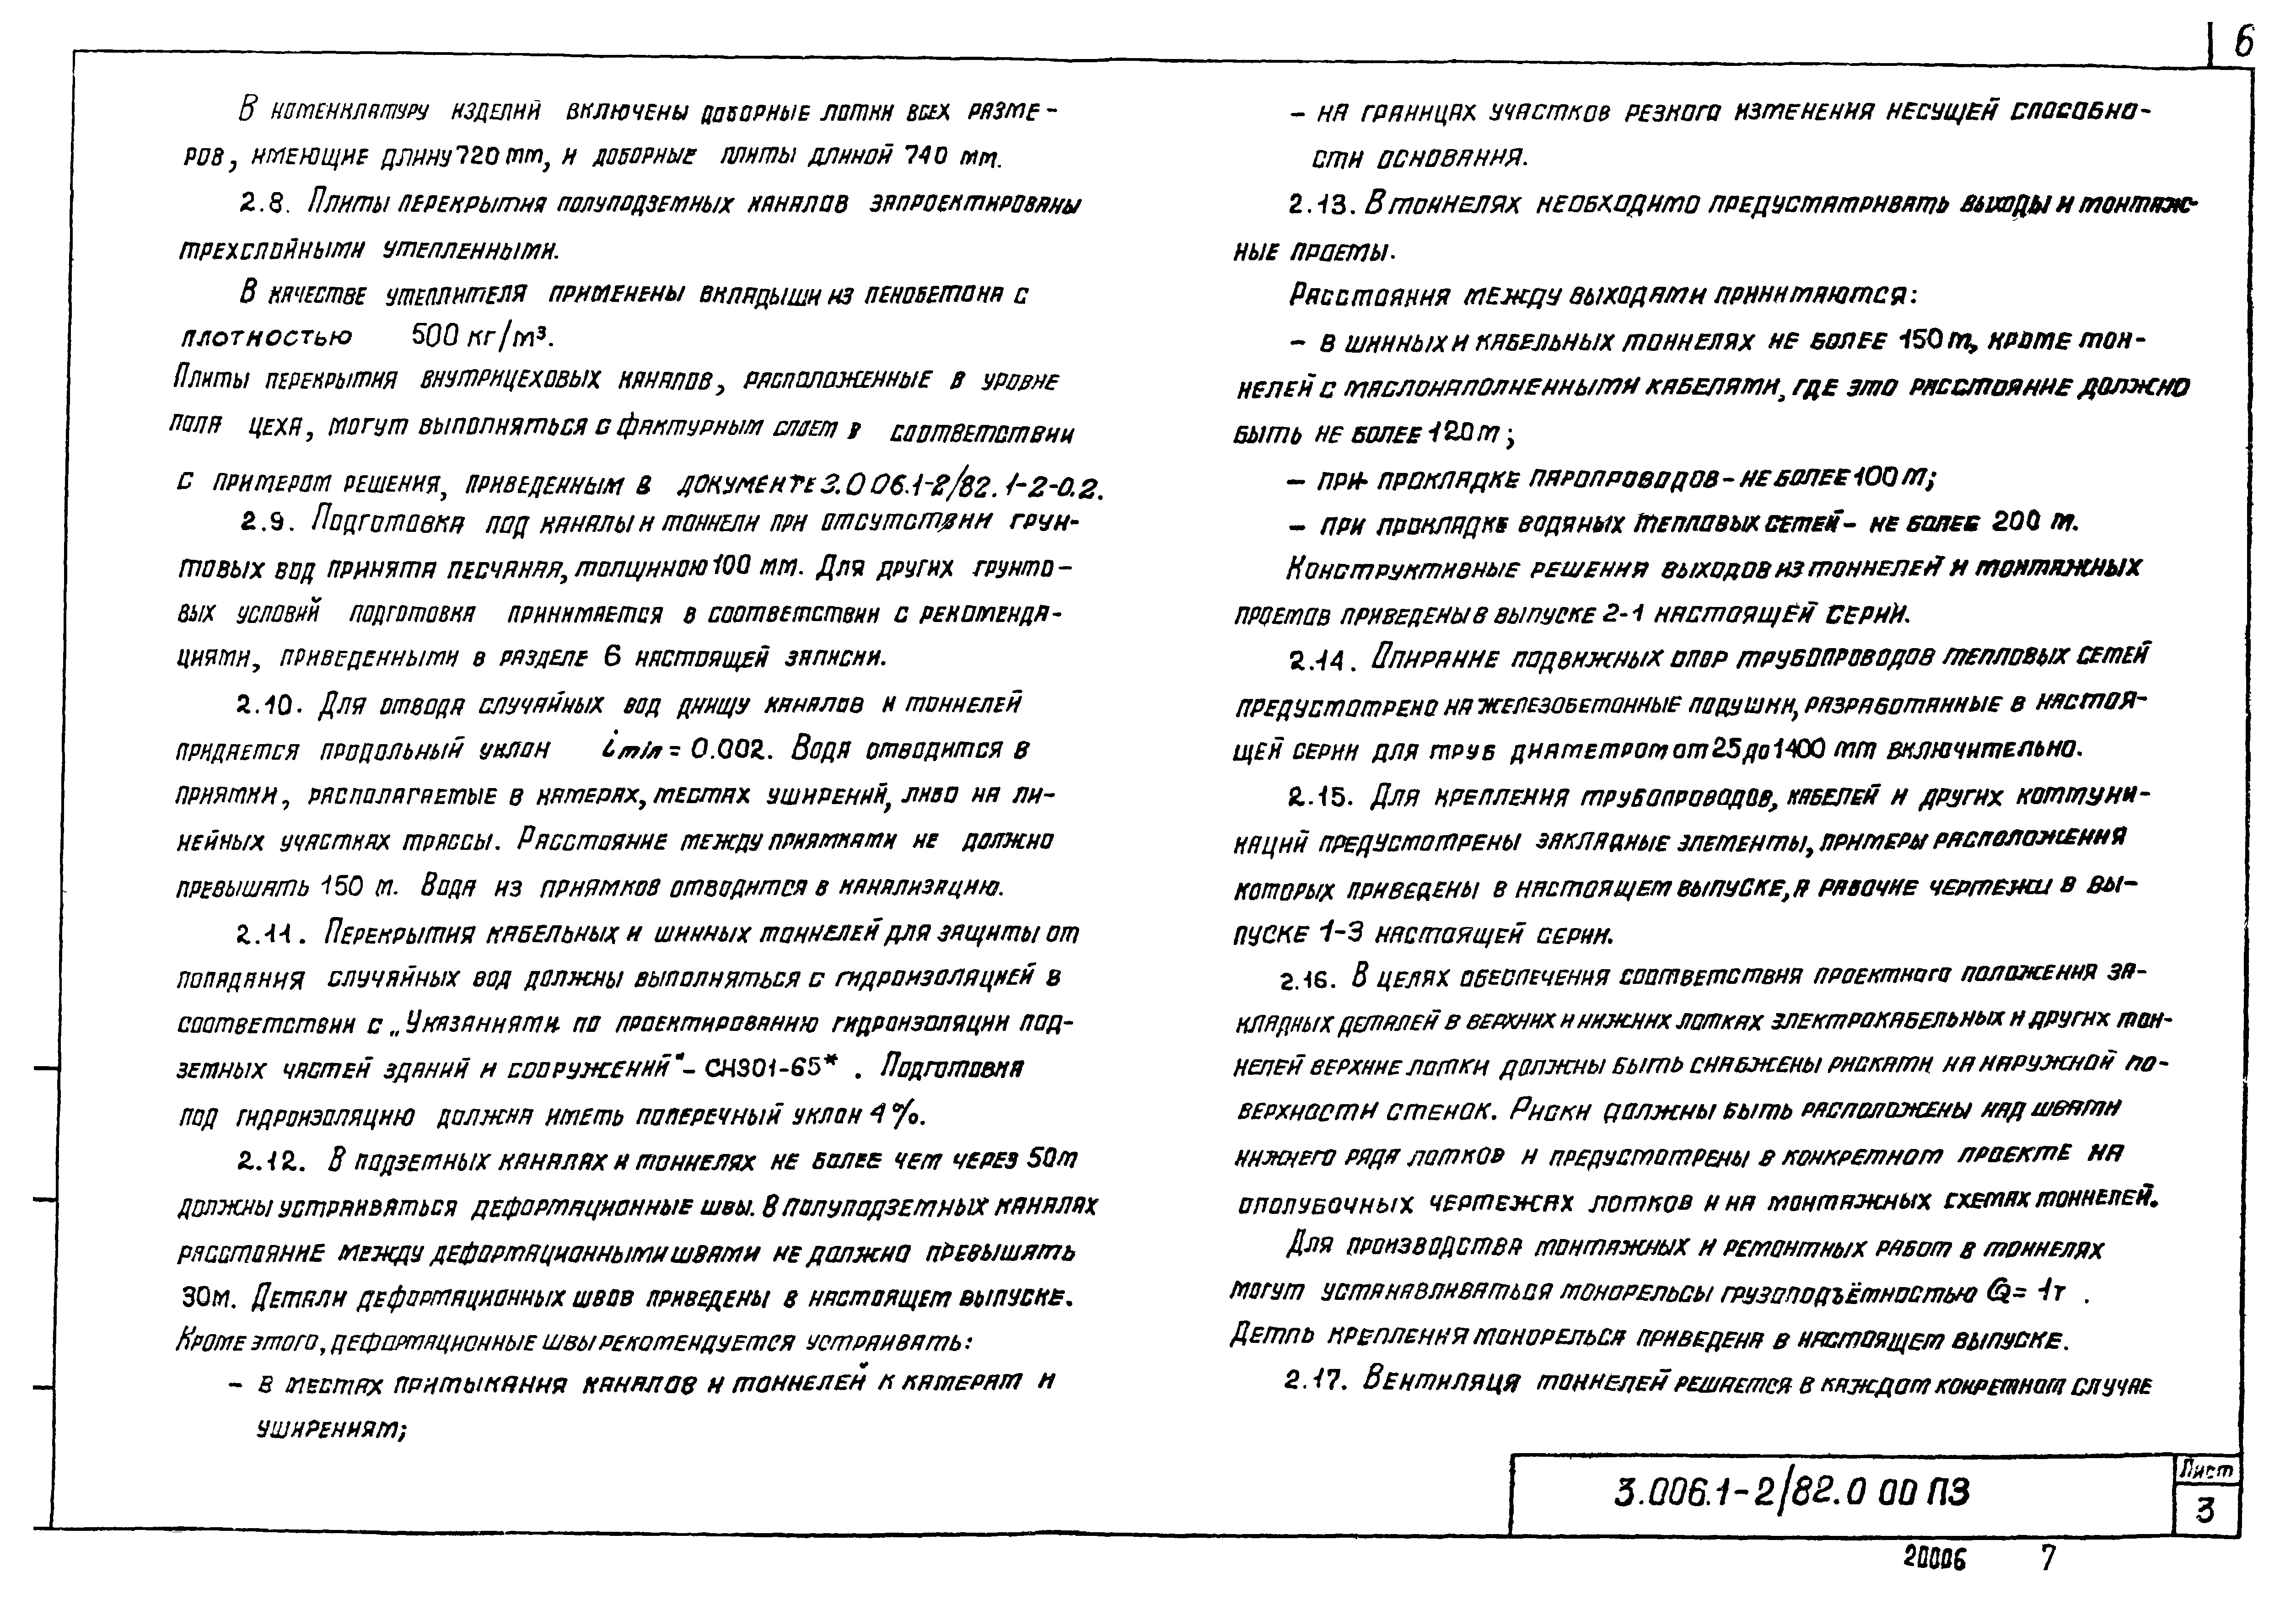 6
В номенклатуру изделий включены доборные лотки всех разме-
ров, имеющие длину 720 мм, и доборные плиты длиной 740 мм.
2.8. Плиты перекрытия полуподземных каналов запроектированы
трехслойными утепленными.
В качестве утеплителя применены вкладыши из пенобетона с
плотностью 500 кг/м³.
Плиты перекрытия внутрицеховых каналов, расположенные в уровне
пола цеха, могут выполняться с фактурным слоем в соответствии
с примером решения, приведенным в документе 3.006.1-2/82.1-2-0.2.
2.9. Подготовка под каналы и тоннели при отсутствии грун-
товых вод принята песчаная, толщиною 100 мм. Для других грунто-
вых условий подготовка принимается в соответствии с рекоменда-
циями, приведенными в разделе 6 настоящей записки.
2.10. Для отвода случайных вод днищу каналов и тоннелей
придается продольный уклон imin = 0.002. Вода отводится в
приямки, располагаемые в камерах, местах уширений, либо на ли-
нейных участках трассы. Расстояние между приямками не должно
превышать 150 м. Вода из приямков отводится в канализацию.
2.11. Перекрытия кабельных и шинных тоннелей для защиты от
попадания случайных вод должны выполняться с гидроизоляцией в
соответствии с „Указаниями по проектированию гидроизоляции под-
земных частей зданий и сооружений" - СН301-65* . Подготовка
под гидроизоляцию должна иметь поперечный уклон 4%.
2.12. В подземных каналах и тоннелях не более чем через 50м
должны устраиваться деформационные швы. В полуподземных каналах
расстояние между деформационными швами не должно превышать
30м. Детали деформационных швов приведены в настоящем выпуске.
Кроме этого, деформационные швы рекомендуется устраивать:
- в местах примыкания каналов и тоннелей к камерам и
уширениям;
- на границах участков резкого изменения несущей способно-
сти основания.
2.13. В тоннелях необходимо предусматривать выходы и монтаж-
ные проемы.
Расстояния между выходами принимаются:
- в шинных и кабельных тоннелях не более 150 м, кроме тон-
нелей с маслонаполненными кабелями, где это расстояние должно
быть не более 120 м;
- при прокладке паропроводов - не более 100 м;
- при прокладке водяных тепловых сетей - не более 200 м.
Конструктивные решения выходов из тоннелей и монтажных
проемов приведены в выпуске 2-1 настоящей серии.
2.14. Опирание подвижных опор трубопроводов тепловых сетей
предусмотрено на железобетонные подушки, разработанные в настоя-
щей серии для труб диаметром от 25 до 1400 мм включительно.
2.15. Для крепления трубопроводов, кабелей и других коммуни-
каций предусмотрены закладные элементы, примеры расположения
которых приведены в настоящем выпуске, а рабочие чертежи в вы-
пуске 1-3 настоящей серии.
2.16. В целях обеспечения соответствия проектного положения за-
кладных деталей в верхних и нижних лотках электрокабельных и других тон-
нелей верхние лотки должны быть снабжены рисками на наружной по-
верхности стенок. Риски должны быть расположены над швами
нижнего ряда лотков и предусмотрены в конкретном проекте на
опалубочных чертежах лотков и на монтажных схемах тоннелей.
Для производства монтажных и ремонтных работ в тоннелях
могут устанавливаться монорельсы грузоподъёмностью Q= 1т .
Деталь крепления монорельса приведена в настоящем выпуске.
2.17. Вентиляця тоннелей решается в каждом конкретном случае
3.006.1-2/82.0 00 ПЗ
Лист
3
20006 7